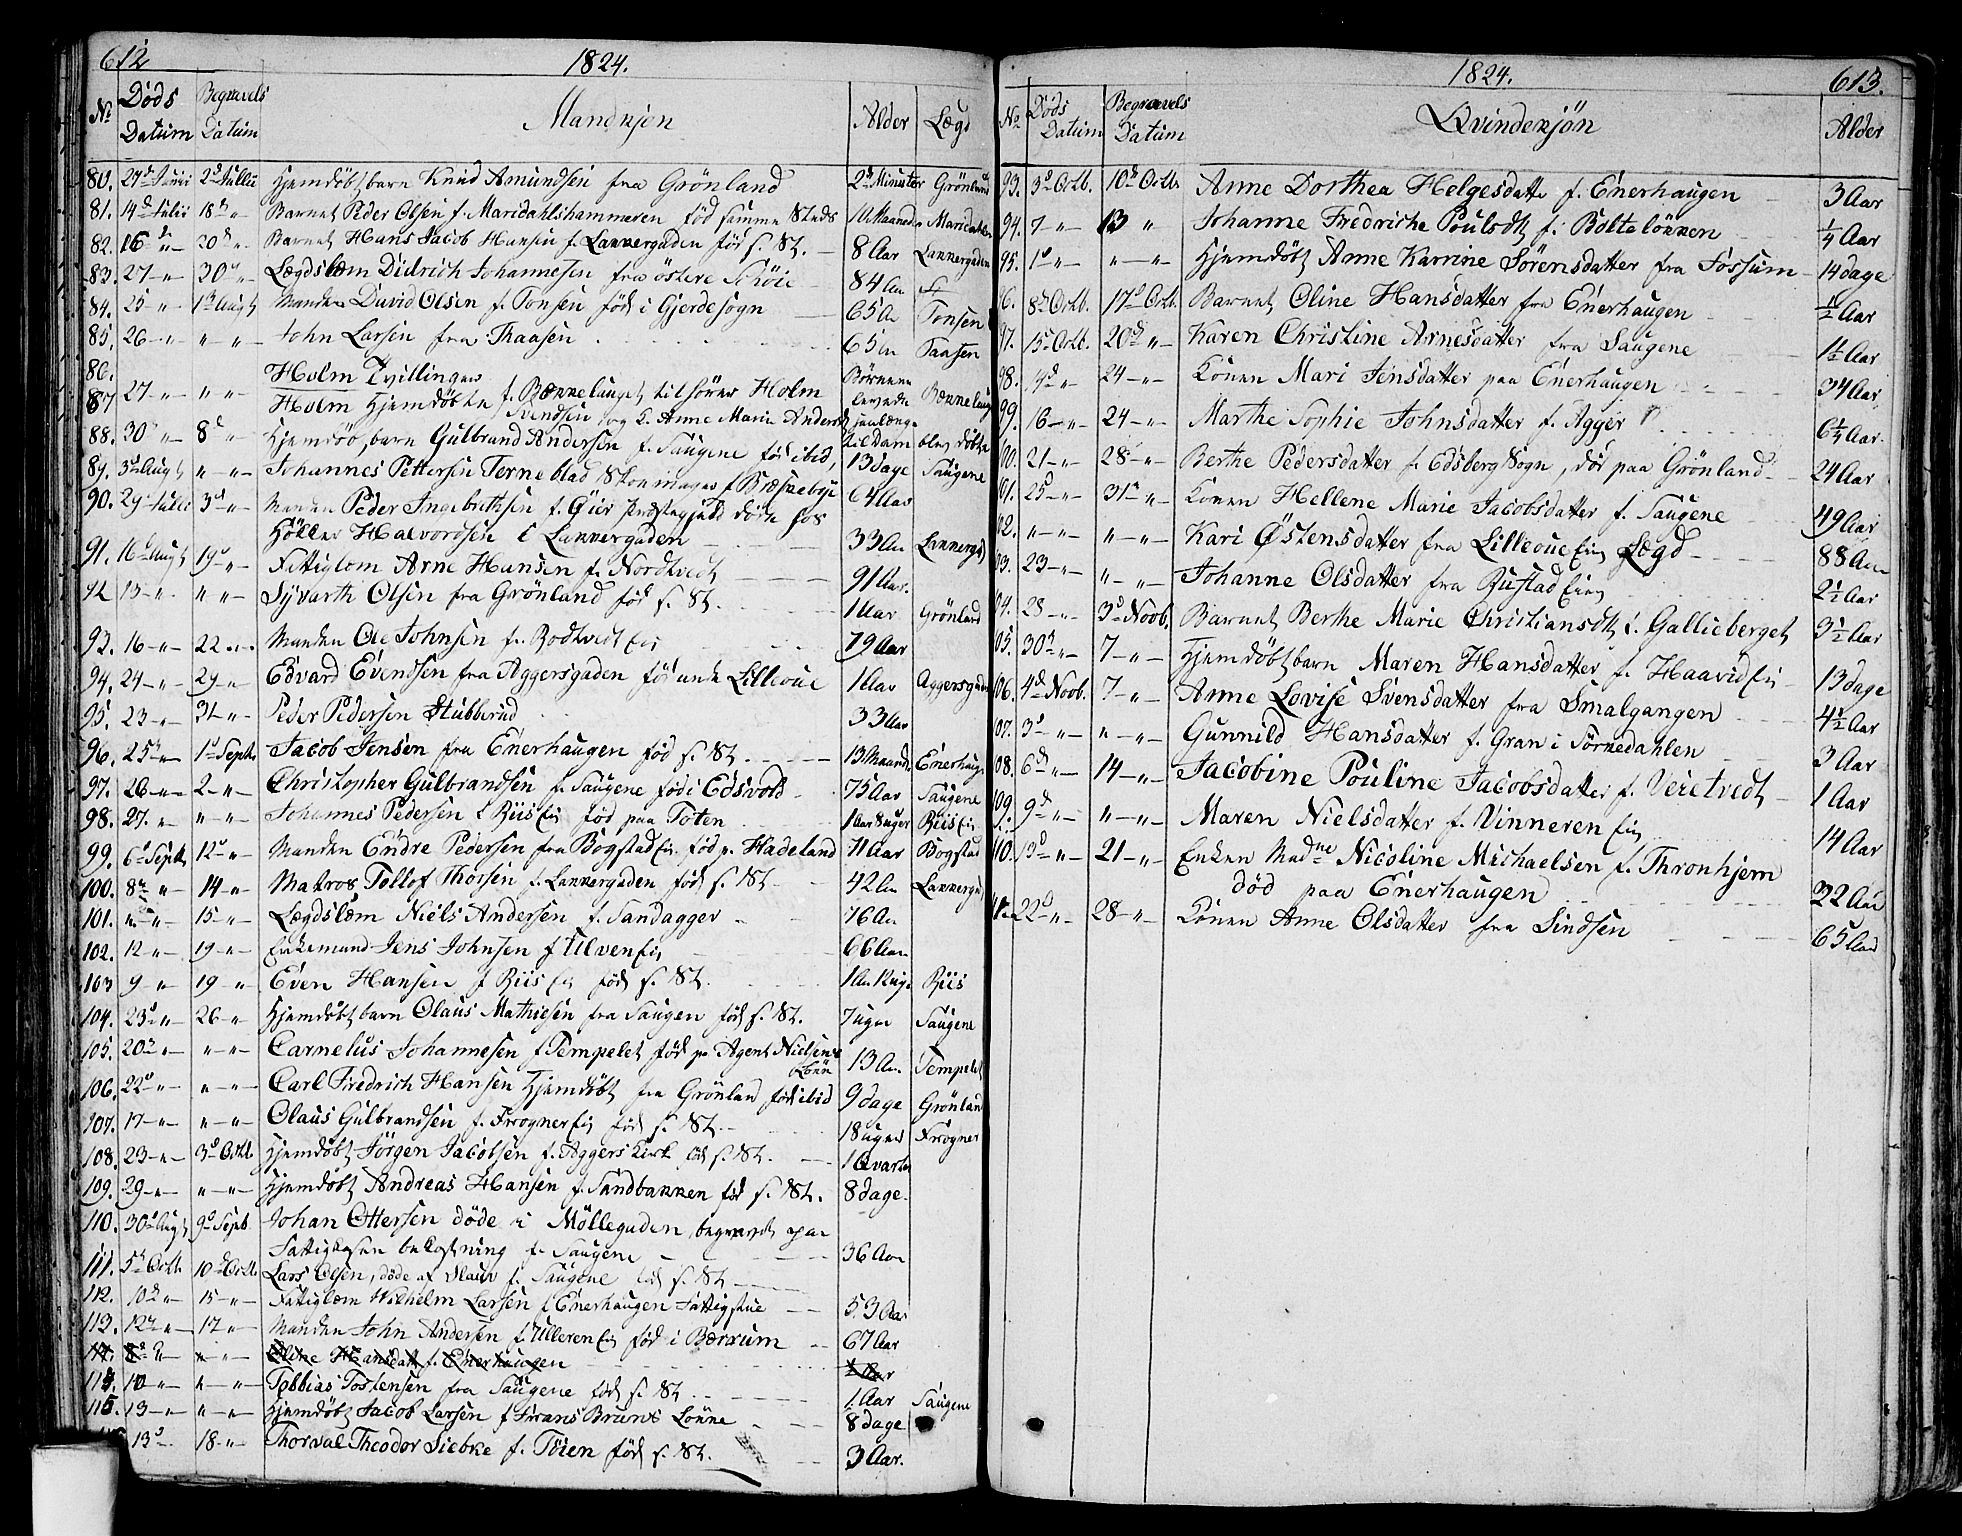 612
1824.
No Døds Datum Begravels Datum Mandkjøn Alder Lægd
80. 27d Junii 2d Julii Hjemdøbt barn Knud Amundsen fra Grønland 2 Minuter Grønland
81. 14d Julii 18d " Barnet Peder Olsen f. Maridahlshammeren fød samme Steds 10 Maaneder Maridalen
82. 16d " 20d " Barnet Hans Jacob Hansen f. Lakkergaden fød s. St. 8 Aar Lakkergaden
83. 27 " 30d " Lægdslem Didrich Johannesen fra østere 84 Aar
84. 25 " 1d Augt Manden David Olsen f. Tonsen fød i Gjerdesogn 65 Aar Tonsen
85. 26 " " " John Larsen fra Thaasen 65 Aar Taasen
86. Holm Tvillinger Børnene
87 27 " " " Holm Hjemdøbte f. Bække lauget tilhører Holm levede Bække laug
Svendsen og K. Anne Marie Andersd
88. 30d " 8d " Hjemdøb, barn Gulbrand Andersen f. Saugene fød ibid, til Dam blev døbte
89. 3d Augt " " Johannes Pettersen Terneblad Skomager f 13 dage Saugene
90. 29d Julii 3d " Manden Peder Ingebrethsen f. Præstegjeld døde hos 64 Aar
Halvordsen i Lakkergaden
91. 16d Augt 19d " Fattiglem Arne Hansen f. Nordtvedt 33 Aar Lakkergad
92 13 " " " Syvarth Olsen fra Grønland fød s. St. 91 Aar.
1 Aar Grønland
93. 16 " 22 " Manden Ole Johnsen fr. Rodtvedt Eie 79 Aar
94. 24 " 29 " Edvard Evendsen fra Aggersgaden født unde Lilleoue 1 Aar Aggersgade
95. 23 " 31 " Peder Pedersen Stubberud 33 Aar
96. 25d " 1d Septb Jacob Jensen fra Enerhaugen fød s. St. 13 Maand. Enerhaug
97. 26 " 2 " Christopher Gulbrandsen f. Saugene fød i Edsvold 75 Aar Saugene
98. 27. " " " Johannes Pedersen i Riis Eie fød paa Toten 1 Aar 8 uger Riis Eie
99. 6d Septb 12d " Manden Endre Pedersen fra Bogstad Eie fød p. Hadeland 71 Aar Bogstad
100. 8d " 14 " Matros Tollof Thorsen f. Lakkergaden fød s. St. 42 Aar Lakkergad
101. " " 15 " Lægdslem Niels Andersen f. Sandagger 76 Aar
102. 12 " 19 " Enkemand Jens Johnsen f Ulven Eie 66 Aar
103 9 " 19 " Even Hansen f Riis Eie fød s. St. Riis
104. 23d " 26 " Hjemdøbt barn Olaus Mathiesen fra Saugen fød s. St. 7 uger Saugene
105. 20d " " " Carnelus Johannesen f Tempelet fød pa Agent Nielsens Løkke 13 Aar Tempelet
106. 22d " " " Carl Fredrich Hansen Hjemdøbt fra Grønland fød ibid 9 dage Grønland
107. 17 " " " Olaus Gulbrandsen f. Frogner Eie fød s. St. 18 uger Frogner
108. 23 " 3d Octb. Hjemdøbt Jørgen Jacobsen f. Aggers Kirk fød s. St. 1 Qvarter
109. 29 " " " Hjemdøbt Andreas Hansen f. Sandbakken fød s. St. 8 dage.
110. 30d Augt 9d Septb Johan Ottersen døde i Møllegaden, begravet paa
Fattigkasen bekostning f. Saugene 36 Aar
111. 5d Octb. 10d Octb. Lars Olsen, døde af f. Saugene fød s. St
112. 10d " 15 " Fattiglem Wilhelm Larsen f Enerhaugen Fattigstue 53 Aar
113. 12d " 17 " Manden John Andersen f. Ulleren Eie fød i Bærrum 67 Aar
114. 8d " " " Oline Hansdatt f. Enerhaugen 1/2 Aar
114. 10 " " " Tobbias Tostensen fra Saugene fød s. St. 1 Aar Saugene
115. 13 " " " Hjemdøbt Jacob Larsen f Frans Bruns Løkke 8 dage
13d " 18 " Thorval Theodor Siebke f. Tøien fød s. St. 3 Aar.
1824.
613.
No Døds Datum Begravels Datum Qvindekjøn Alder
93. 3d Octb. 10d Octb Anne Dorthea Helgesdatte f. Enerhaugen 3 Aar
94. 7 " 13 " Johanne Fredriche Poulsdtt f. Bolteløkken 1/4 Aar
95. 1d " " " Hjemdøbt Anne Karrine Sørensdatter fra Fossum 14 dage
6. 8d Octb. 17d Octb. Barnet Oline Hansdatter fra Enerhaugen 1/2 Aar
97. 15 Octb. 20d " Karen Christine Arnesdatter fra Saugene 1 1/2 Aar
98. " 24 " Konen Mari Jensdatter paa Enerhaugen 34 Aar
99. 16 " 24 " Marthe Sophie Johnsdatter f. Agger 6 1/4 Aar.
00. 21 " 28 " Berthe Pedersdatter f. Edsberg Sogn, dør paa Grønland 24 Aar
01. 25d " 31d " Konen Hellene Marie Jacobsdatter f. Saugene 49 Aar
02. " " " " Kari Østensdatter fra Lilleoue Eie Lægd 88 Aar
03. 23 " " " Johanne Olsdatter fra Rustad Eie 2 1/2 Aar
04. 28 " 3d Novb. Barnet Berthe Marie Christiansdtt i. Gallieberget 3 1/2 Aar
05. 30d " 7 " Hjemdøbt barn Maren Hansdatter f. Haavid Eie 13 dage
06. 4d Novb. 7 " Anne Lovise Svensdatter fra Smalgangen 4 1/2 Aar
07. 3d " " " Gunnild Hansdatter f. Gran i Sørkedahlen 3 Aar
08. 6d " 14 " Jacobine Pouline Jacobsdatter f. Veitvedt 1 Aar
09. 9d " " " Maren Nielsdatter f. Vinneren Eie 14 Aar
10. 13d " 21 " Enken Madme Nicoline Michaelsen f. Thronhjem
død paa Enerhaugen 32 Aar
22d " 28 " Konen Anne Olsdatter fra Sindsen 65 Aar